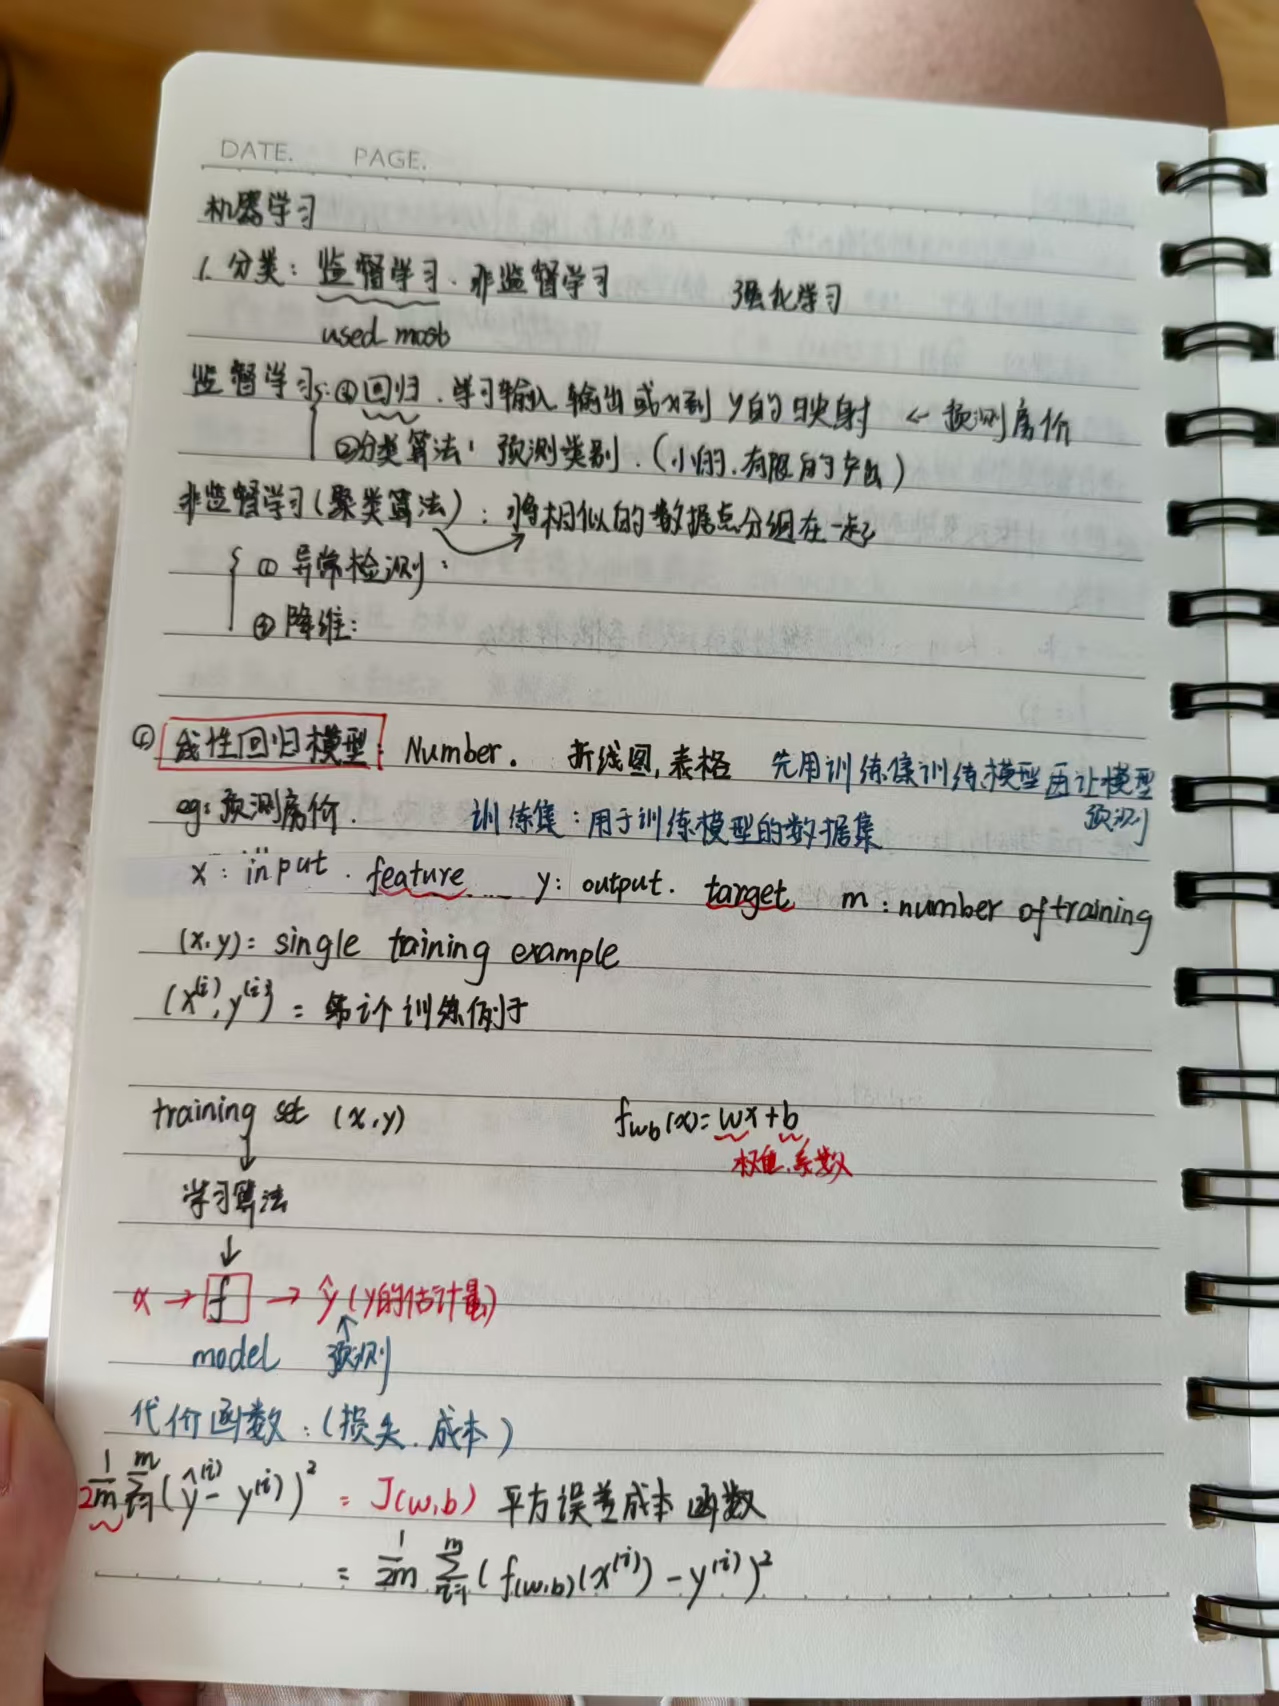 DATE. PAGE.
机器学习
1. 分类：监督学习．非监督学习 强化学习
used most
监督学习：①回归．学习输入输出或x到y的映射 ← 预测房价
②分类算法：预测类别．（小的．有限的产出）
非监督学习（聚类算法）：将相似的数据点分组在一起
①异常检测：
②降维：
线性回归模型：Number． 折线图，表格 先用训练集训练模型再让模型
预测
eg：预测房价． 训练集：用于训练模型的数据集
x：input．feature y：output．target m：number of training
(x,y)：single taining example
(x⁽ⁱ⁾, y⁽ⁱ⁾) = 第i个训练例子
training set (x,y) f_wb(x)=wx+b
↓ 权值．系数
学习算法
↓
x → f → ŷ (y的估计量)
↑
model 预测
代价函数：（损失．成本）
1/2m Σ_{i=1}^m (ŷ⁽ⁱ⁾ - y⁽ⁱ⁾)² = J(w,b) 平方误差成本函数
= 1/2m Σ_{i=1}^m (f_(w,b)(x⁽ⁱ⁾) - y⁽ⁱ⁾)²